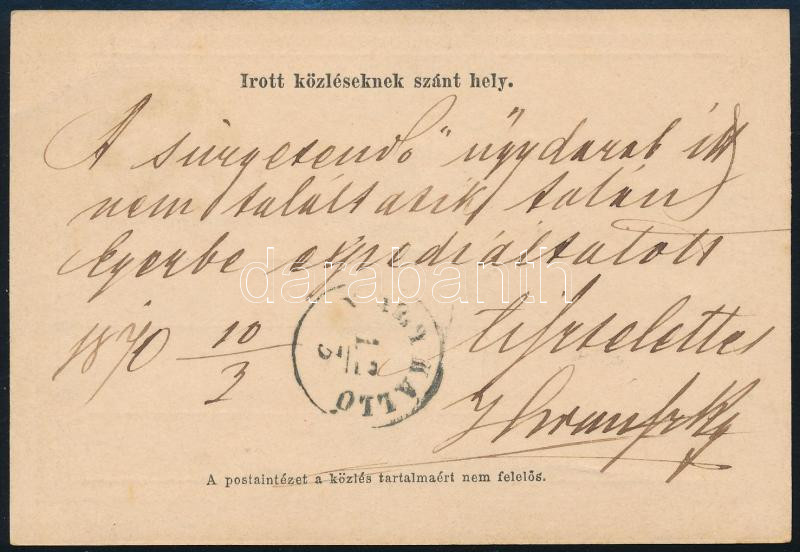 Irott közléseknek szánt hely.
A sürgetendő ügydarab itt
nem találtatik, talán
Egerbe expediáltatott
darabanth
1870 10/3 tisztelettel
NAGY KALLÓ
A postaintézet a közlés tartalmaért nem felelős.